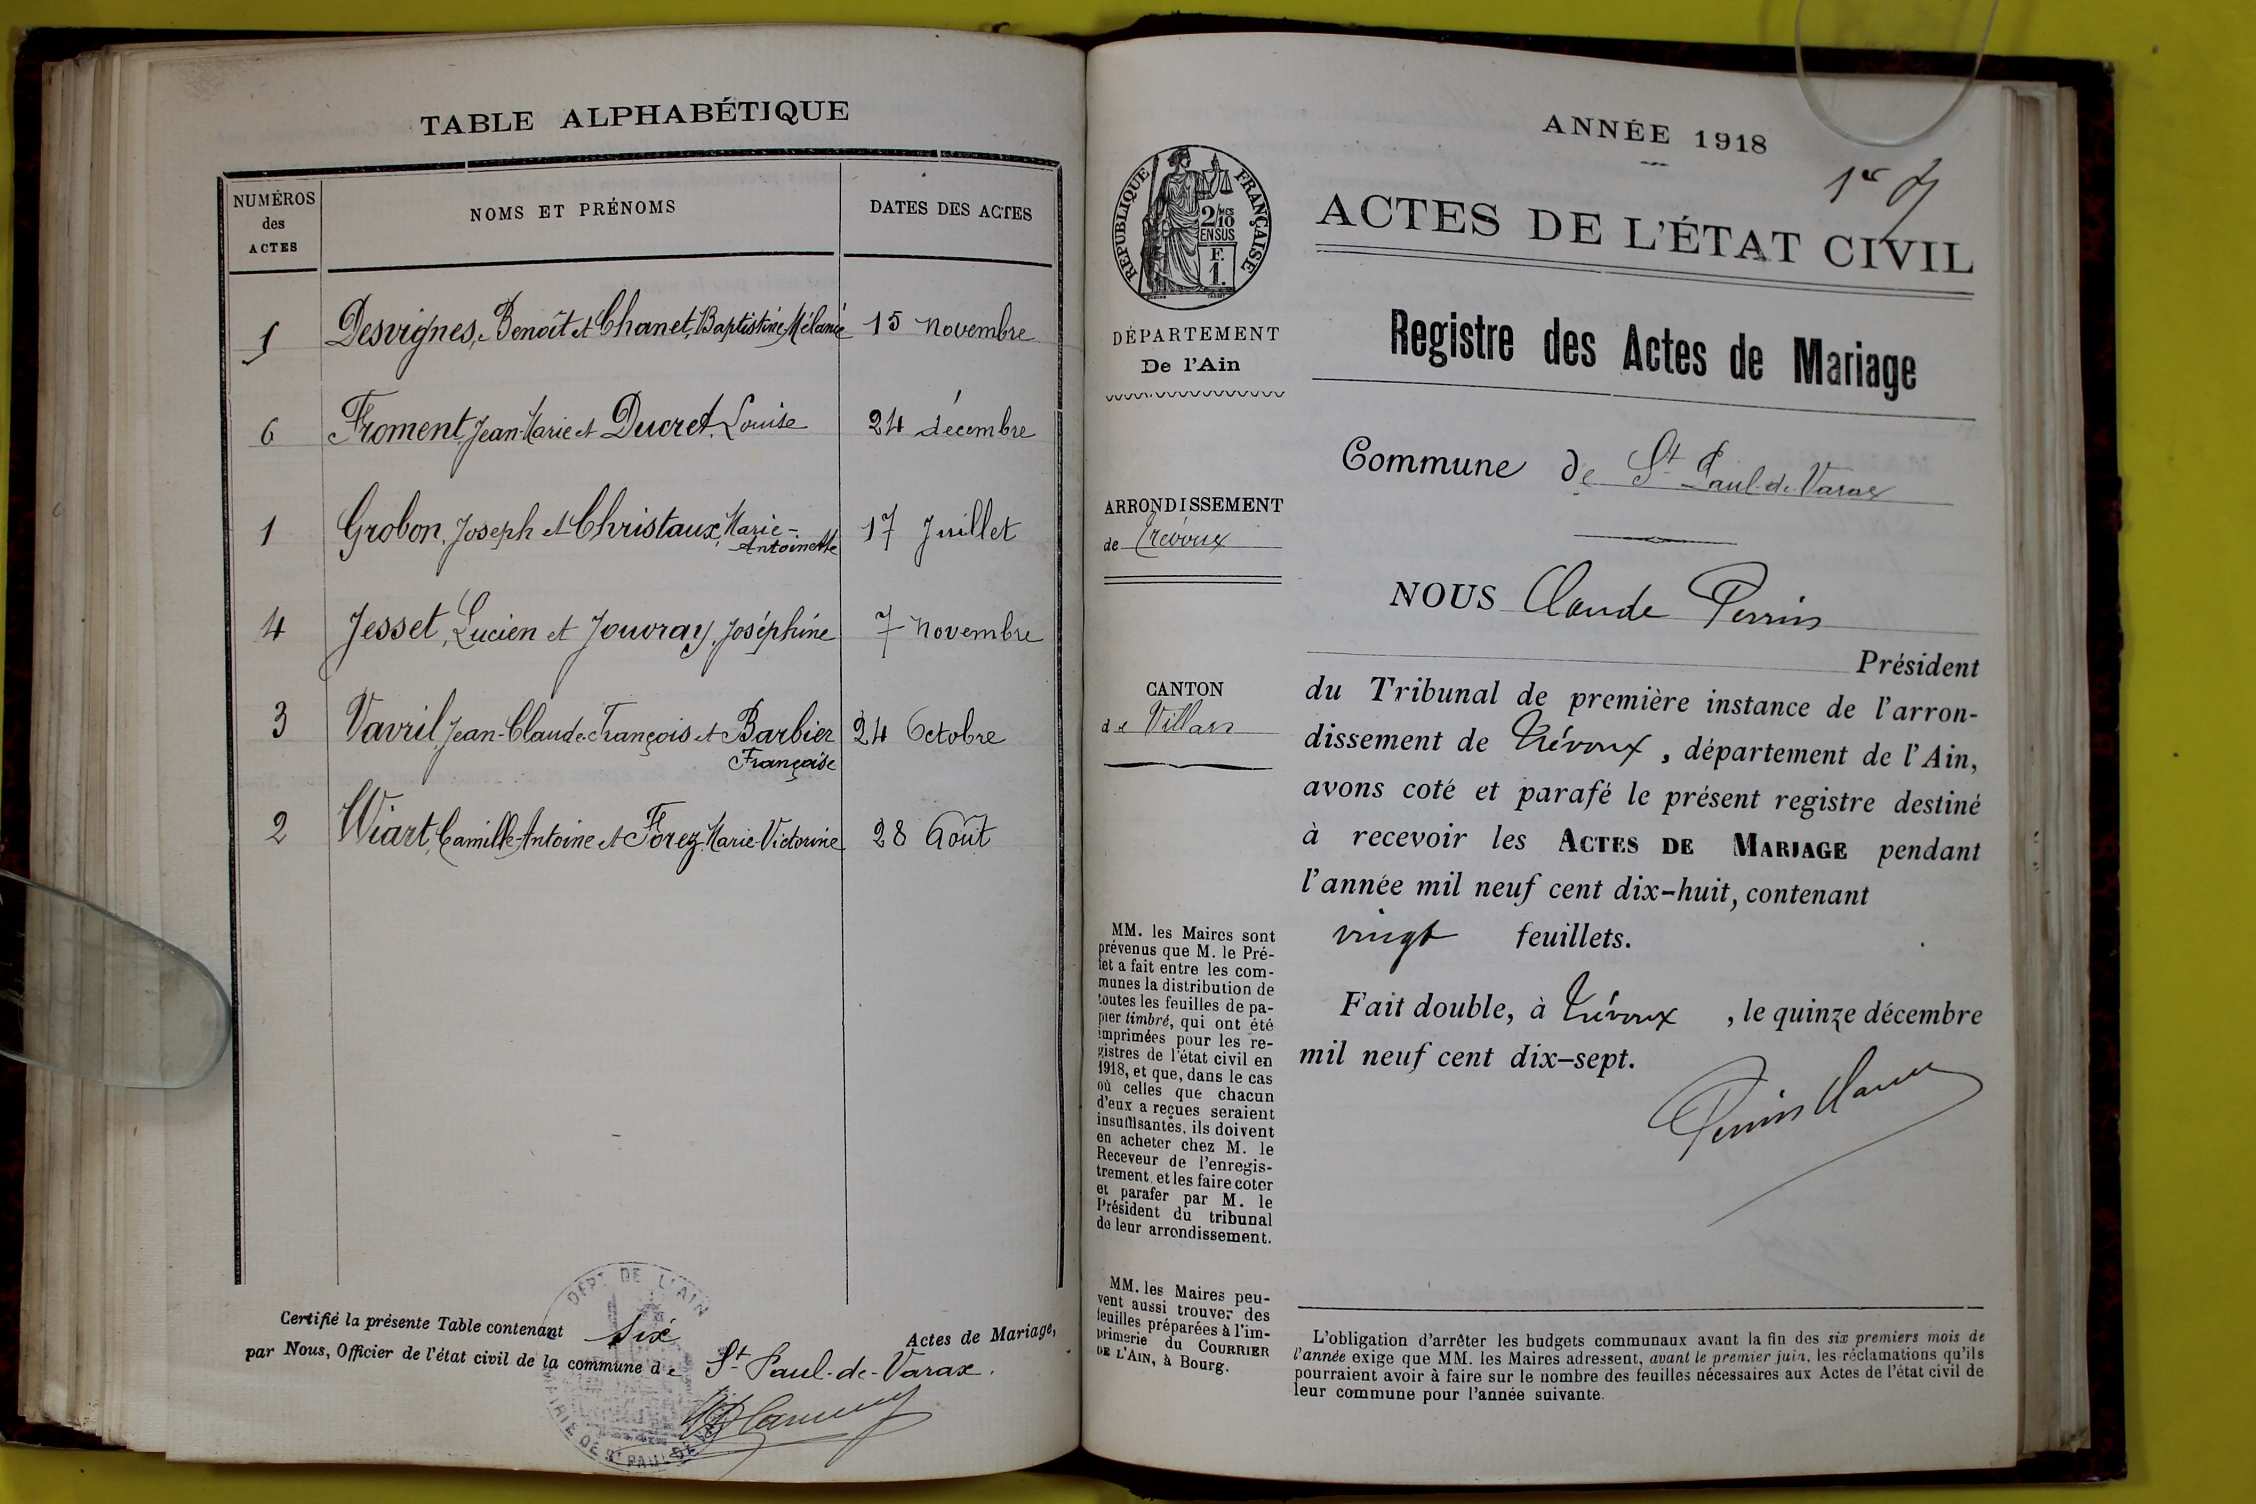 TABLE ALPHABÉTIQUE
NUMÉROS
des
ACTES
NOMS ET PRÉNOMS
DATES DES ACTES
5 Desvignes, Benoît et Chanet, Baptistine Mélanie 15 novembre
6 Froment, Jean-Marie et Ducret, Louise 24 décembre
1 Grobon, Joseph et Christaux, Marie-
Antoinette 17 Juillet
4 Jesset, Lucien et Jouvray, Joséphine 7 novembre
3 Vavril, Jean-Claude-François et Barbier
Françoise 24 Octobre
2 Wiart, Camille-Antoine et Forez, Marie-Victorine 28 Août
Certifié la présente Table contenant six Actes de Mariage,
par Nous, Officier de l'état civil de la commune de St Paul-de-Varax.
DÉPT DE L'AIN
MAIRIE DE ST PAUL DE
ANNÉE 1918
1er
ACTES DE L'ÉTAT CIVIL
RÉPUBLIQUE FRANÇAISE
2/10 MES
EN SUS
F.
1.
DÉPARTEMENT
De l'Ain
ARRONDISSEMENT
de Trévoux
CANTON
de Villars
MM. les Maires sont
prévenus que M. le Pré-
fet a fait entre les com-
munes la distribution de
toutes les feuilles de pa-
pier timbré, qui ont été
imprimées pour les re-
gistres de l'état civil en
1918, et que, dans le cas
où celles que chacun
d'eux a reçues seraient
insuffisantes, ils doivent
en acheter chez M. le
Receveur de l'enregis-
trement, et les faire coter
et parafer par M. le
Président du tribunal
de leur arrondissement.
MM. les Maires peu-
vent aussi trouver des
feuilles préparées à l'im-
primerie du COURRIER
DE L'AIN, à Bourg.
Registre des Actes de Mariage
Commune de St Paul-de-Varax
NOUS Claude Perrin
Président
du Tribunal de première instance de l'arron-
dissement de Trévoux, département de l'Ain,
avons coté et parafé le présent registre destiné
à recevoir les ACTES DE MARIAGE pendant
l'année mil neuf cent dix-huit, contenant
vingt feuillets.
Fait double, à Trévoux, le quinze décembre
mil neuf cent dix-sept.
Perrin Claude
L'obligation d'arrêter les budgets communaux avant la fin des six premiers mois de
l'année exige que MM. les Maires adressent, avant le premier juin, les réclamations qu'ils
pourraient avoir à faire sur le nombre des feuilles nécessaires aux Actes de l'état civil de
leur commune pour l'année suivante.